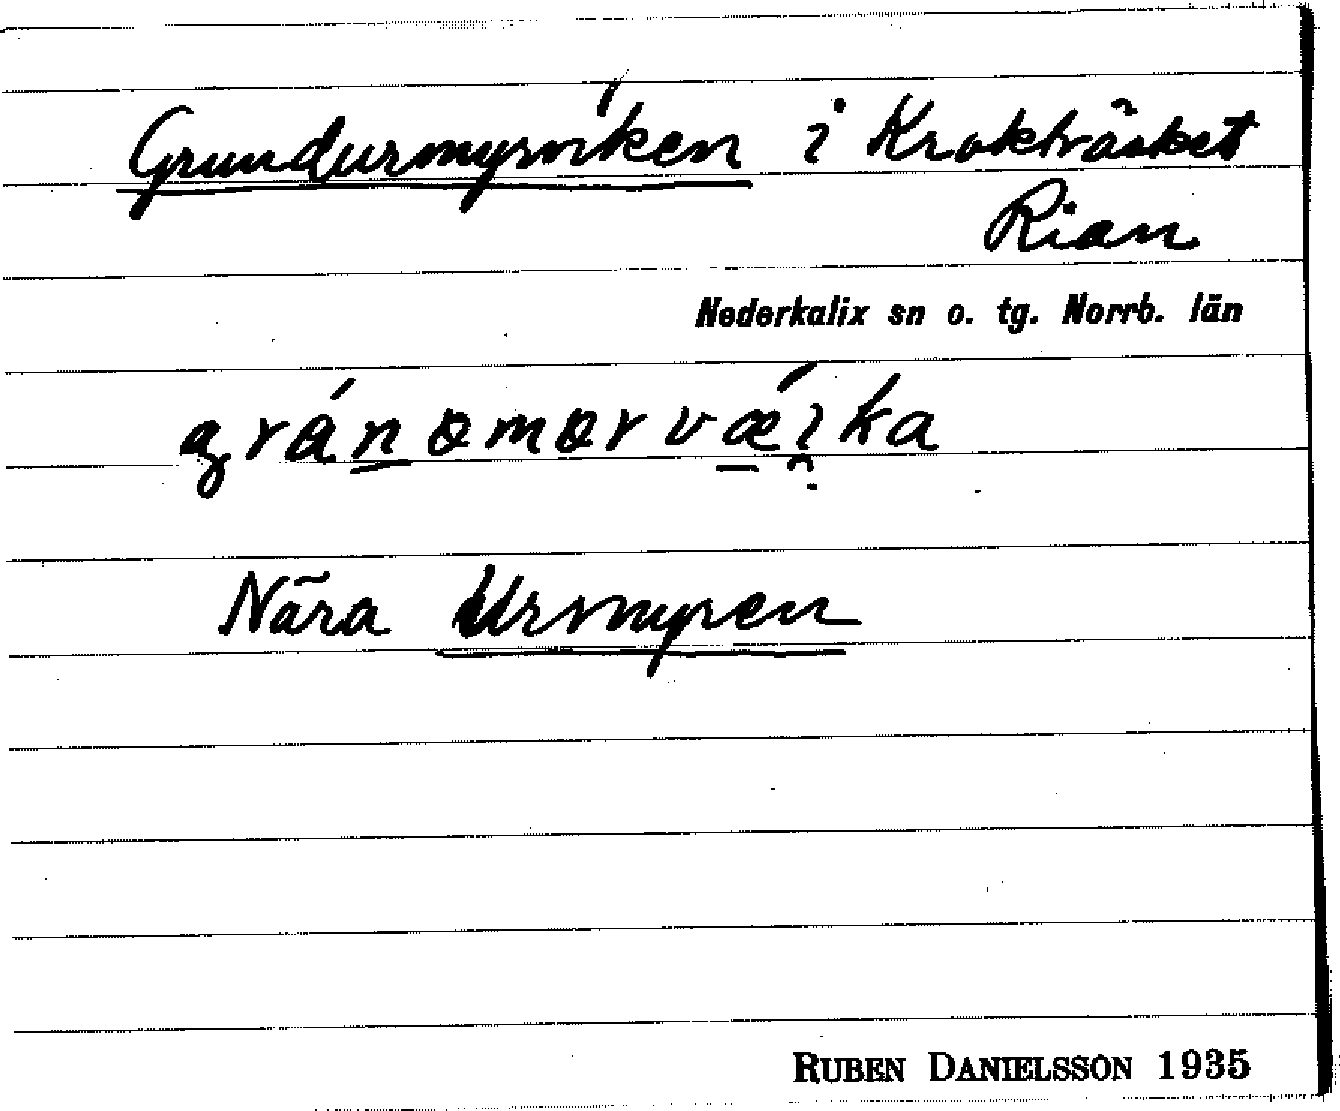 Grundurmyrviken i Krokträsket
Rian
Nederkalix sn o. tg. Norrb. län
Nära Urmyren
RUBEN DANIELSSON 1935